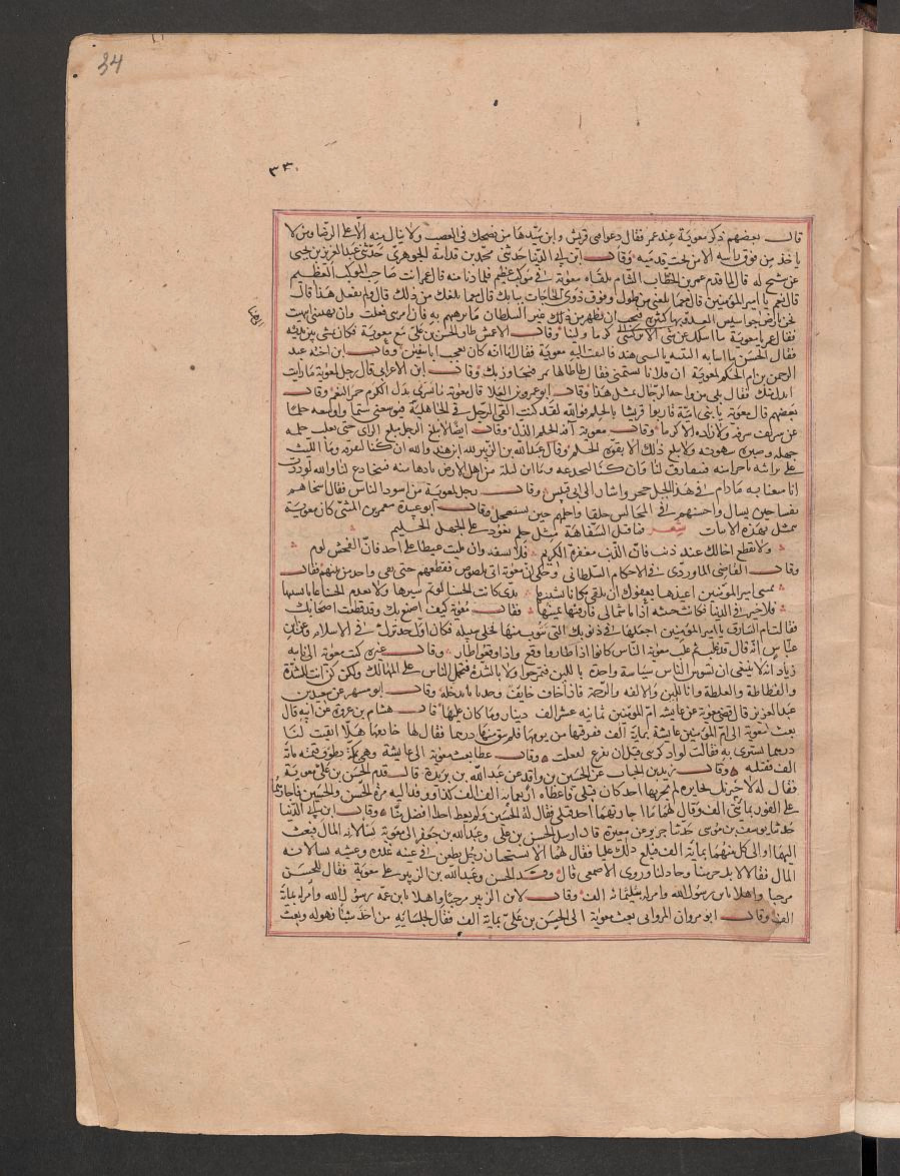 34
٣٣٠
قال بعضهم ذكر معوية عند عمر فقال دعوا فتى قريش وابن سيدها من يضحك في الغضب ولا ينال منه الا على الرضا ومن لا
ياخذ من فوق راسه الا من تحت قدميه وقال ابن ابي الدنيا حدثني محمد بن قدامة الجوهري حدثني عبد العزيز بن يحيى
عن شيخ له قال لما قدم عمر بن الخطاب الشام تلقاه معوية في موكب عظيم فلما دنا منه قال عمر انت صاحب الموكب العظيم
قال نعم يا امير المؤمنين قال مع ما بلغني من طول وقوف ذوي الحاجات ببابك قال مع ما بلغك من ذلك قال ولم تفعل هذا قال
نحن بارض جواسيس العدو بها كثيرة فيجب ان نظهر من عز السلطان ما نرهبهم به فان امرتني فعلت وان نهيتني انتهيت
فقال عمر يا معوية ما اسلك عن شي الا تركتني
وقال الاعمش طاف الحسن بن علي مع معوية فكان يمشي بين يديه
فقال الحسن ما اشبه اليتيه باليتي هند فالتفت اليه معوية فقال اما انه كان يعجب ابا سفين وقال ابن اخته عبد
الرحمن بن ام الحكم لمعوية ان فلانا يشتمني فقال طاطا لها تمر فتجاوزك وقال ابن الاعرابي قال رجل لمعوية ما رايت
انذل منك فقال بلى من واجه الرجال بمثل هذا وقال ابو عمرو بن العلا قال معوية ما يسرني بذل الكرم حمر النعم وقال
بعضهم قال معوية يا بني امية فارقوا قريشا بالحلم فوالله لقد كنت القى الرجل في الجاهلية فيوسعني شتما واوسعه حلما
وقال معوية آفة الحلم الذل وقال ايضا لا يبلغ الرجل مبلغ الراي حتى يغلب حلمه
جهله وصبره شهوته ولا يبلغ ذلك الا بقوة الحلم وقال عبد الله بن الزبير لله ابن هند والله ان كنا لنفرقه وما الليث
على براثنه باجرا منه فيتفارق لنا وان كنا لنخدعه وما ابن ليلة من اهل الارض بادها منه فيتخادع لنا والله لوددت
انا متعنا به ما دام في هذا الجبل حجر واشار الى ابي قبيس وقال رجل لمعوية من اسود الناس فقال اسخاهم
نفسا حين يسال واحسنهم في المجالس خلقا واحلمهم حين يستجهل وقال ابو عبيدة معمر بن المثنى كان معوية
يتمثل بهذه الابيات شعر فما قتل السفاهة مثل حلم يعود به على الجهل الحليم
ولا تقطع اخا لك عند ذنب فان الذنب مغفرة الكريم فلا تسفه وان مليت غيظا على احد فان الفحش لوم
وقال القاضي الماوردي في الاحكام السلطاني وحكي ان معوية اتي بلصوص فقطعهم حتى بقي واحد من بينهم فقال
يميني امير المؤمنين اعيذها بعفوك ان تلقى مكانا يشينها يدي كانت الحسنا لو تم سترها ولا تعدم الحسنا عابا يشينها
فلا خير في الدنيا وكانت حبيبة اذا ما شمالي فارقتها يمينها فقال معوية كيف اصنع بك وقد قطعت اصحابك
فقالت ام السارق يا امير المؤمنين اجعلها في ذنوبك التي تتوب منها فخلى سبيله فكان اول حد ترك في الاسلام وعن ابن
عباس انه قال قد علمتم بم غلب معوية الناس كانوا اذا طاروا وقع واذا وقعوا طار وقال غيره كتب معوية الى نايبه
زياد انه لا ينبغي ان نسوس الناس سياسة واحدة باللين فتمرحوا ولا بالشدة فنحمل الناس على المهالك ولكن كن انت للشدة
والفظاظة والغلظة وانا للين والالفة والرحمة فان اخاف خايف وجد بابا يدخله وقال ابو مسهر عن سعيد بن
عبد العزيز قال قضى معوية عن عايشة ام المؤمنين ثمانية عشر الف دينار وما كان عليها وقال هشام بن عروة عن ابيه قال
بعث معوية الى ام المؤمنين عايشة بماية الف ففرقتها من يومها فلم يبق منها درهما فقال لها خادمها هلا ابقيت لنا
درهما نشتري به فقالت لو اذكرتني قبل ان افرغ لفعلت وقال عطا بعث معوية الى عايشة وهي بمكة بطوق قيمته ماية
الف فقبلته وقال زيد بن الحباب عن الحسين بن واقد عن عبد الله بن بريدة قال قدم الحسن بن علي على معوية
فقال له لاجيزنك بجايزة لم يجزها احد كان قبلي فاعطاه اربعماية الف الف ووفد اليه مرة الحسن والحسين فاجازهما
على الفور بمايتي الف وقال لهما ما اجاز بهما احد قبلي فقال له الحسين ولم يعط احدا افضل منا وقال ابن ابي الدنيا
حدثنا يوسف بن موسى حدثنا جرير عن مغيرة قال ارسل الحسن بن علي وعبد الله بن جعفر الى معوية يسالانه المال فبعث
اليهما او الى كل منهما بماية الف فبلغ ذلك عليا فقال لهما الا تستحيان رجل نطعن في عينه غدوة وعشية تسالانه
المال فقالا لانك حرمتنا وجاد لنا وروى الاصمعي قال وفد الحسن وعبد الله بن الزبير على معوية فقال للحسن
مرحبا واهلا بابن رسول الله وامر له بثلثماية الف وقال لابن الزبير مرحبا واهلا بابن عمة رسول الله وامر له بماية
الف وقال ابو مروان المرواني بعث معوية الى الحسن بن علي بماية الف فقال لجلسايه من اخذ شيا فهو له وبعث